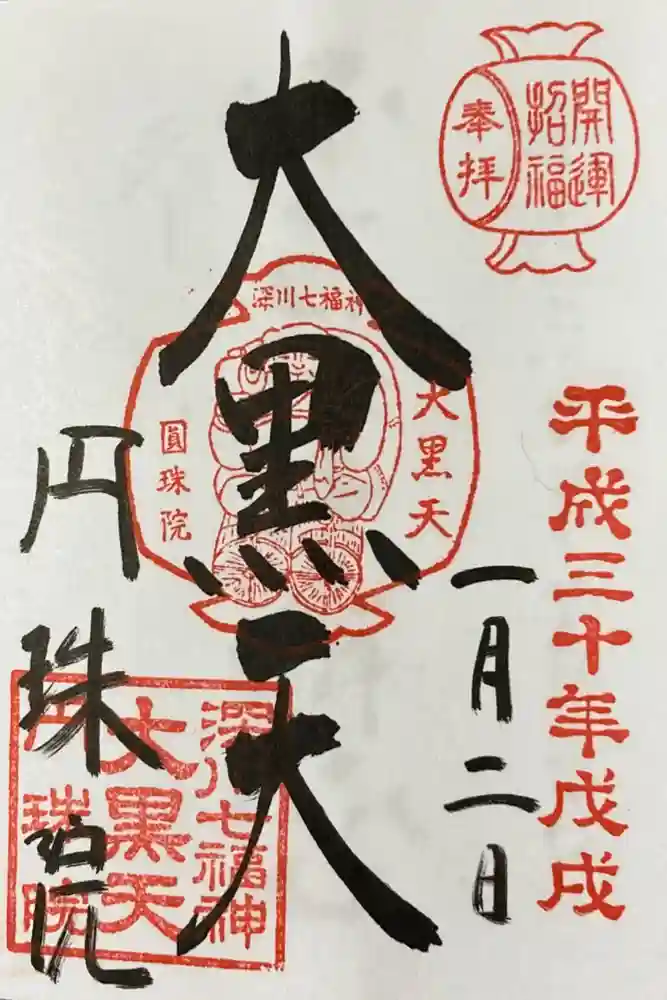 開運
招福
奉拝
平成三十年戊戌
一月二日
大黒天
深川七福神
大黒天
圓珠院
深川七福神
大黒天
円珠院
円珠院